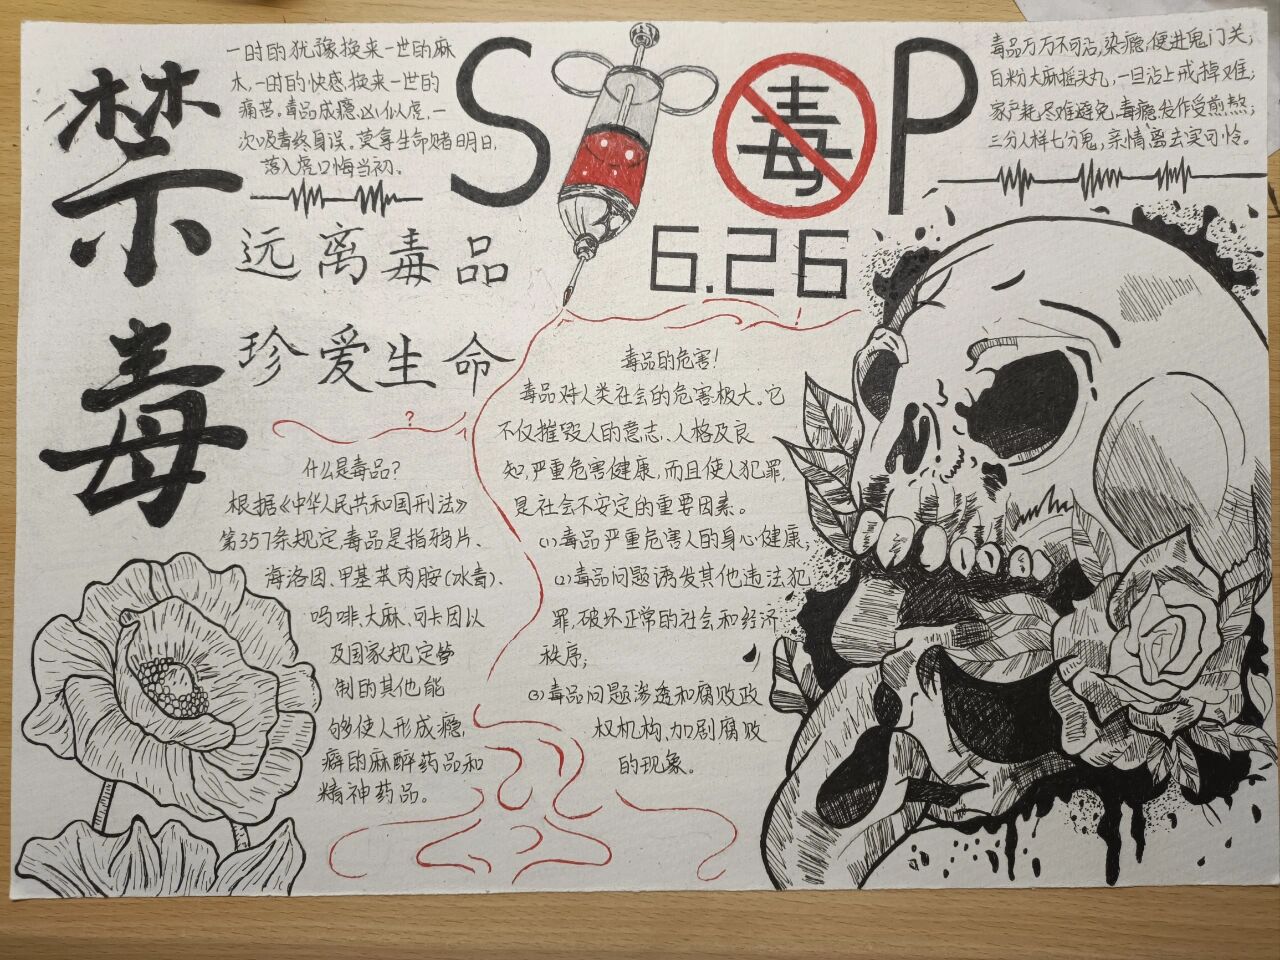 禁毒
一时的犹豫换来一世的麻
木,一时的快感,换来一世的
痛苦。毒品成瘾凶似虎,一
次吸毒终身误。莫拿生命赌明日,
落入虎口悔当初。
STOP
毒
6.26
毒品万万不可沾,染瘾便进鬼门关;
白粉大麻摇头丸,一旦沾上戒掉难;
家产耗尽难避免,毒瘾发作受煎熬;
三分人样七分鬼,亲情离去实可怜。
远离毒品
珍爱生命
?
什么是毒品?
根据《中华人民共和国刑法》
第357条规定,毒品是指鸦片、
海洛因、甲基苯丙胺(冰毒)、
吗啡、大麻、可卡因以
及国家规定管
制的其他能
够使人形成瘾,
癖的麻醉药品和
精神药品。
!
毒品的危害!
毒品对人类社会的危害极大。它
不仅摧毁人的意志、人格及良
知,严重危害健康,而且使人犯罪,
是社会不安定的重要因素。
(1)毒品严重危害人的身心健康;
(2)毒品问题诱发其他违法犯
罪,破坏正常的社会和经济
秩序;
(3)毒品问题渗透和腐败政
权机构,加剧腐败
的现象。